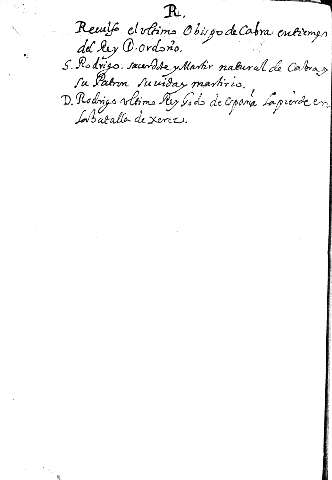 R.
Reculfo el ultimo Obispo de Cabra en tiempo
del Rey D. Ordoño.
S. Rodrigo. sacerdote y Martir natural de Cabra y
su Patron su vida y martirio.
D. Rodrigo ultimo Rey Godo de España la pierde en
la batalla de xerez.